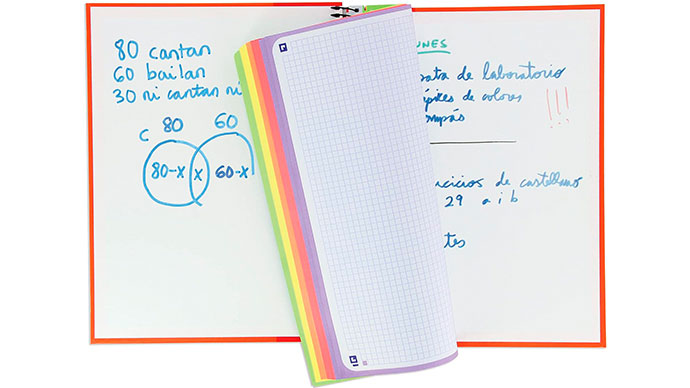 80 cantan
60 bailan
30 ni cantan ni
C 80 60
80-x x 60-x
UNES
ata de laboratorio
pices de colores
mpás
!!!
cicios de castellano
29 a i b
tes